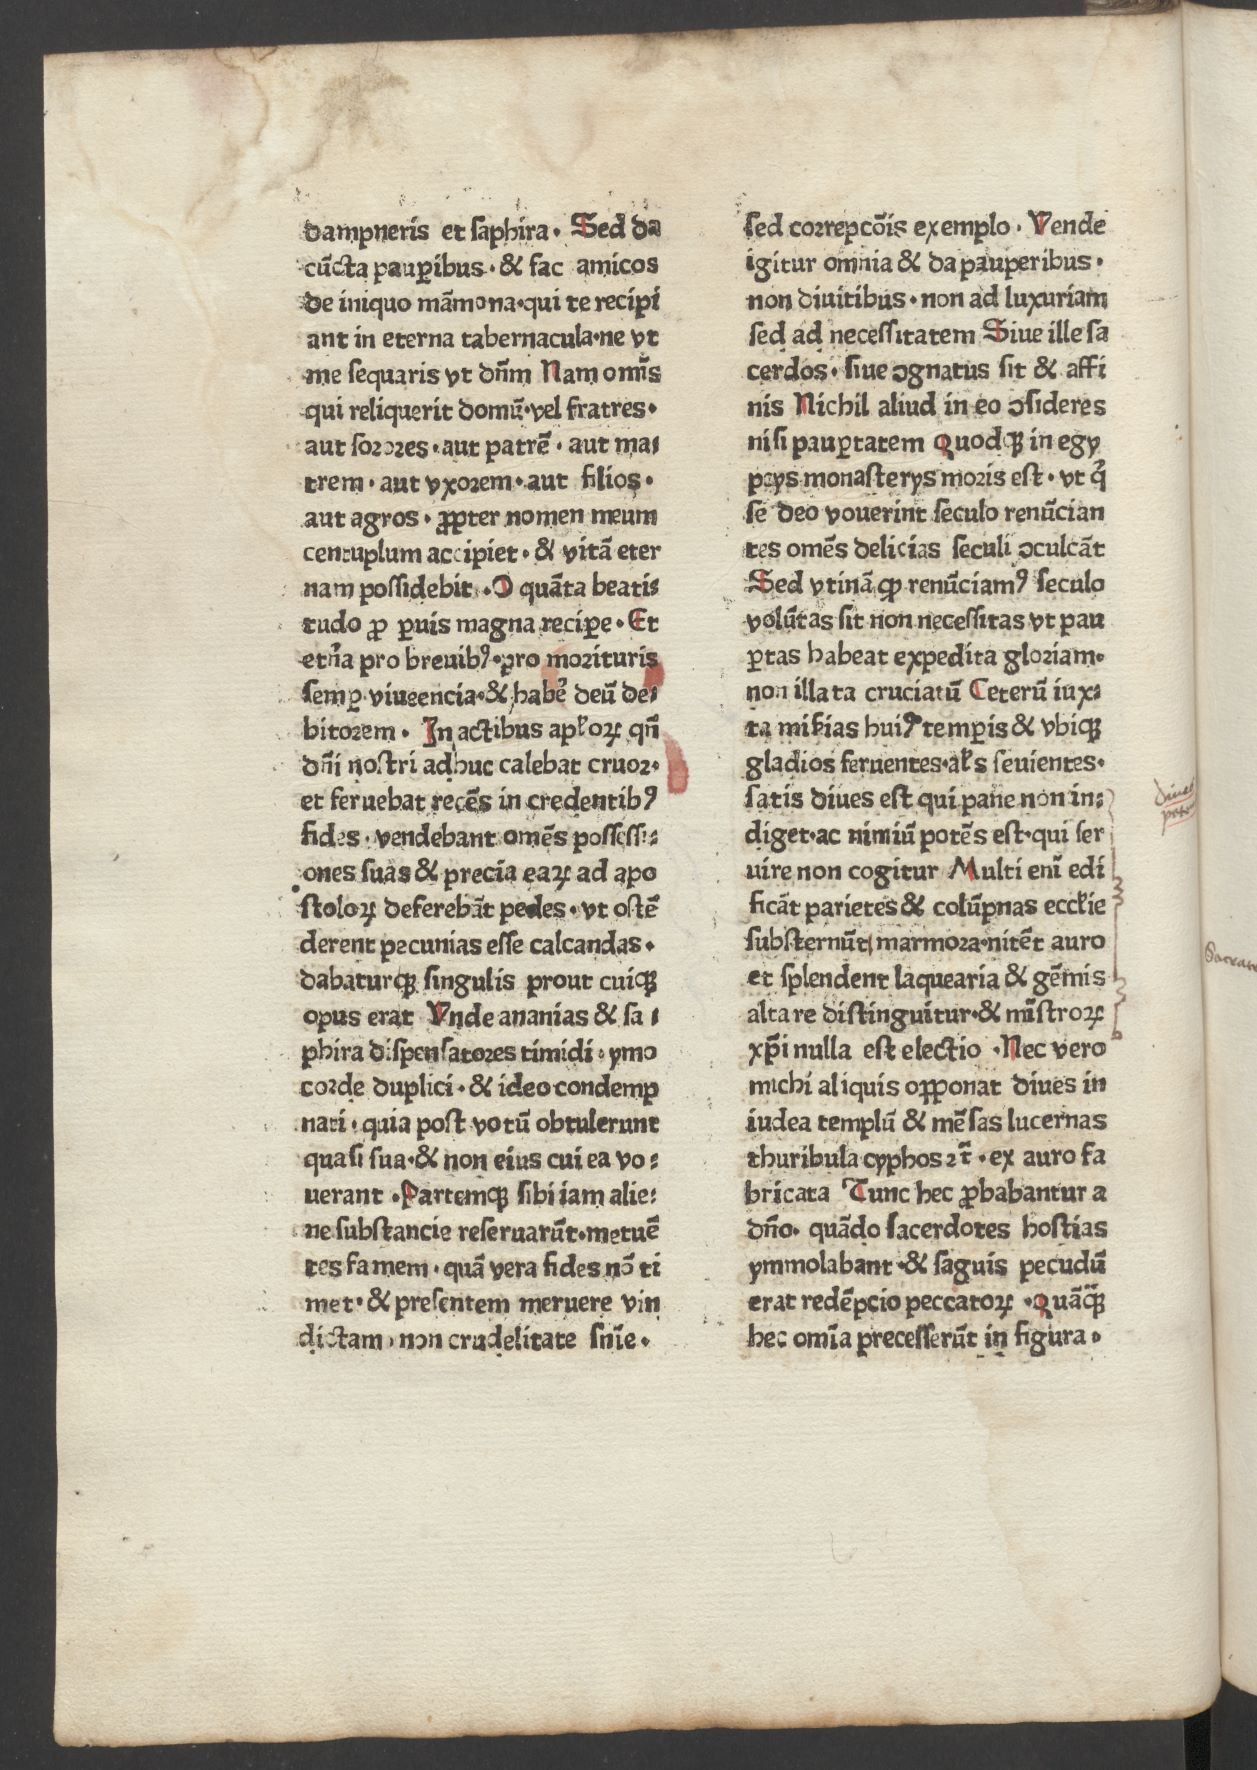 dampneris et saphira· Sed da
cūcta paup̱ibus·& fac amicos
de iniquo mām̄ona·qui te recipi
ant in eterna tabernacula·ne vt
me sequaris vt dn̄m Nam omīs
qui reliquerit domū·vel fratres·
aut sorores·aut patrē·aut ma⸗
trem·aut vxorem·aut filios·
aut agros·ꝓpter nomen meum
centuplum accipiet·& vitā eter
nam possidebit·O quāta beati⸗
tudo ꝓ ꝑuis magna reciꝑe·Et
etn̄a pro breuibꝰ·pro morituris
semꝑ viueencia·& habe̓ deū de⸗
bitorem· In actibus apl̓oꝝ qn̄
dn̄i nostri adhuc calebat cruor·
et feruebat recēs in credentibꝰ
fides·vendebant omēs possessi⸗
ones suas & precia eaꝝ ad apo
stoloꝝ deferebāt pedes·vt ostē
derent pecunias esse calcandas·
dabaturqꝫ singulis prout cuiqꝫ
opus erat Vnde ananias & sa⸗
phira dispensatores timidi·ymo
corde duplici·& ideo condemp
nati·quia post votū obtulerunt
quasi sua·& non eius cui ea vo⸗
uerant·Partemqꝫ sibi iam alie⸗
ne substancie reseruarūt·metuē
tes famem·quā vera fides nō ti
met·& presentem meruere vin
dictam·non crudelitate sn̄ie·
sed correpcōis exemplo·Vende
igitur omnia & da pauperibus·
non diuitibus·non ad luxuriam
sed ad necessitatem Siue ille sa
cerdos·siue ꝯgnatus sit & affi
nis Nichil aliud in eo ꝯsideres
nisi pauꝑtatem Quodqꝫ in egy
pcys monasterys moris est·vt q̓
se deo vouerint seculo renūcian
tes omēs delicias seculi ꝯculcāt
Sed vtinā ꝙ renūciamꝰ seculo
volūtas sit non necessitas vt pau
ꝑtas habeat expedita gloriam·
non illata cruciatū Ceterū iux⸗
ta mis̄ias huiꝰ temꝑis & vbiqꝫ
gladios feruentes·al̓s seuientes·
satis diues est qui pane non in⸗
diget·ac nimiū potēs est·qui ser
uire non cogitur Multi enī edi
ficāt parietes & colūpnas eccl̓ie
substernūt marmora·nitēt auro
et splendent laquearia & gēmis
altare distinguitur·& mīstroꝝ
xp̄i nulla est electio·Nec vero
michi aliquis oꝓponat diues in
iudea templū & mēsas lucernas
thuribula cyphos ⁊t̄·ex auro fa
bricata Tunc hec ꝓbabantur a
dn̄o·quādo sacerdotes hostias
ymmolabant·& saguis pecudū
erat redēpcio peccatoꝝ·Quāqꝫ
hec omīa precesserūt in figura·